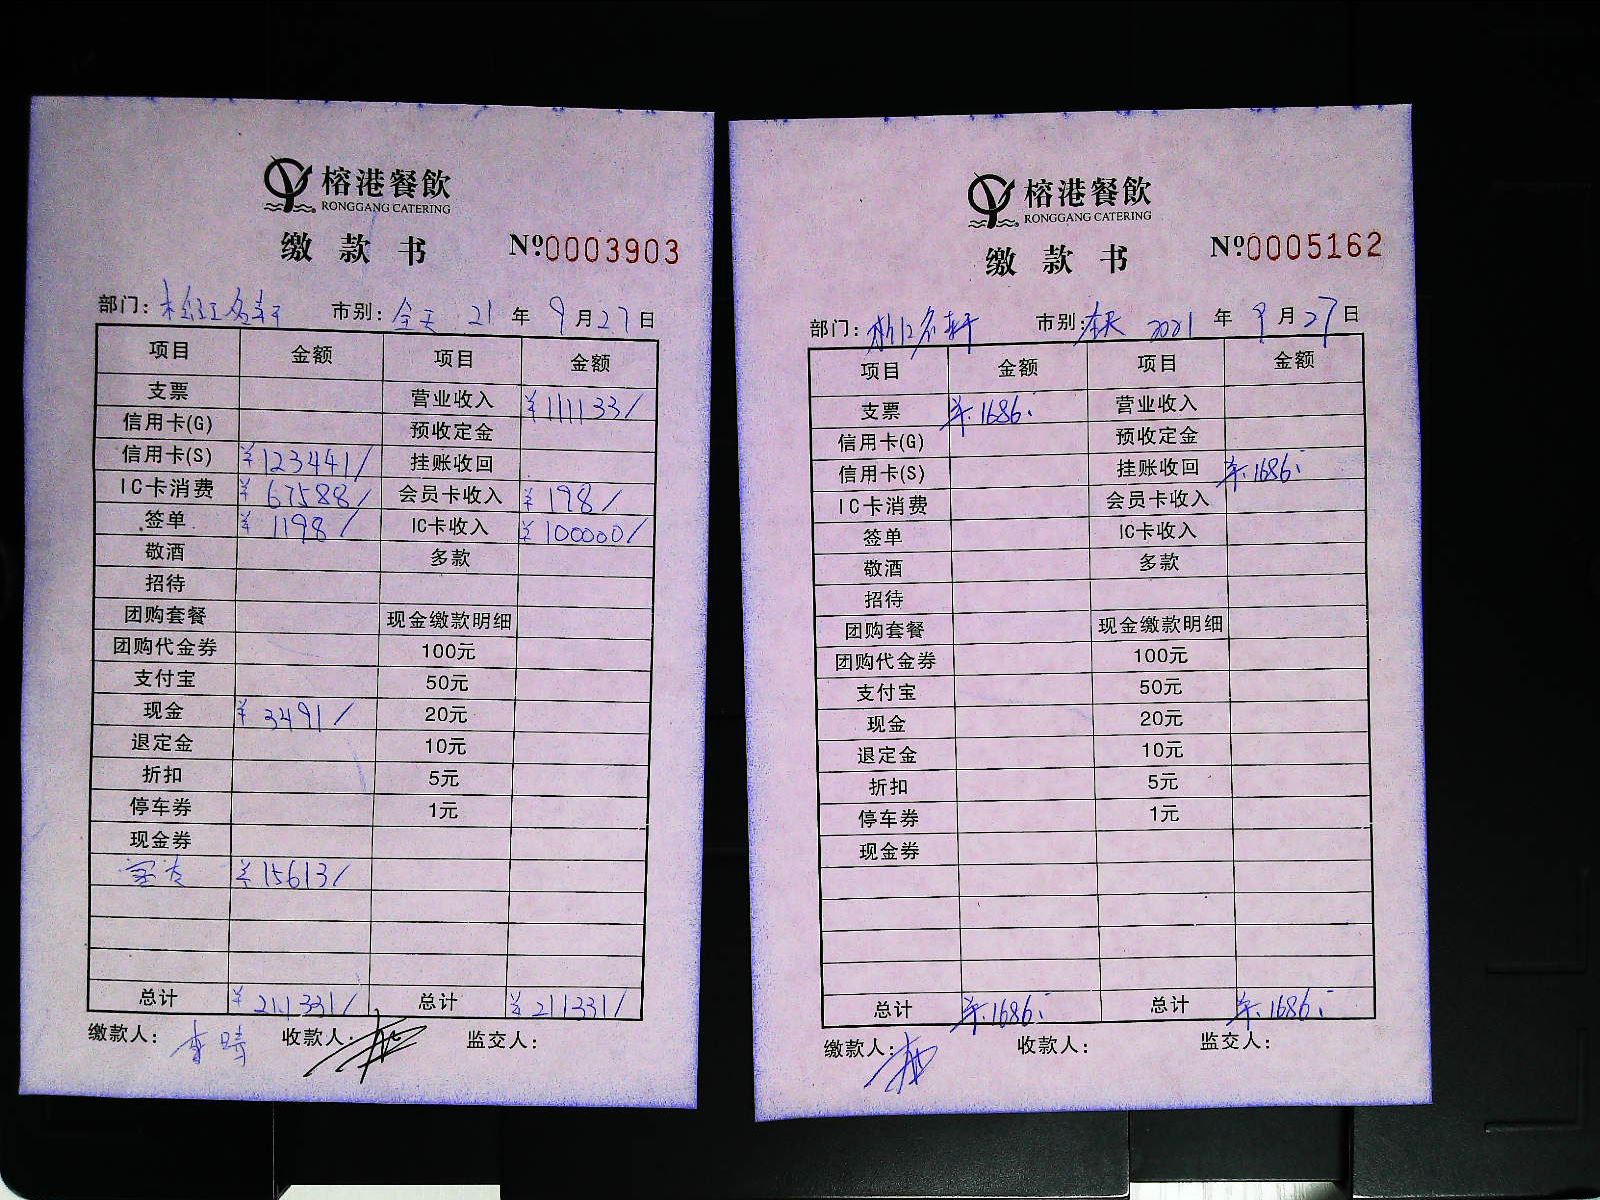 榕港餐飲
RONGGANG CATERING
缴款书 Nº0003903
部门：松江名轩 市别：全天 21年9月27日
项目 金额 项目 金额
支票 营业收入 ¥111133/
信用卡(G) 预收定金
信用卡(S) ¥123441/ 挂账收回
IC卡消费 ¥67588/ 会员卡收入 ¥198/
签单 ¥1198/ IC卡收入 ¥100000/
敬酒 多款
招待
团购套餐 现金缴款明细
团购代金券 100元
支付宝 50元
现金 ¥3491/ 20元
退定金 10元
折扣 5元
停车券 1元
现金券
¥15613/
总计 ¥211331/ 总计 ¥211331/
缴款人：李晴 收款人： 监交人：
榕港餐飲
RONGGANG CATERING
缴款书 Nº0005162
部门：松江名轩 市别：全天 2021年9月27日
项目 金额 项目 金额
支票 ¥1686 营业收入
信用卡(G) 预收定金
信用卡(S) 挂账收回 ¥1686
IC卡消费 会员卡收入
签单 IC卡收入
敬酒 多款
招待
团购套餐 现金缴款明细
团购代金券 100元
支付宝 50元
现金 20元
退定金 10元
折扣 5元
停车券 1元
现金券
总计 ¥1686 总计 ¥1686
缴款人： 收款人： 监交人：